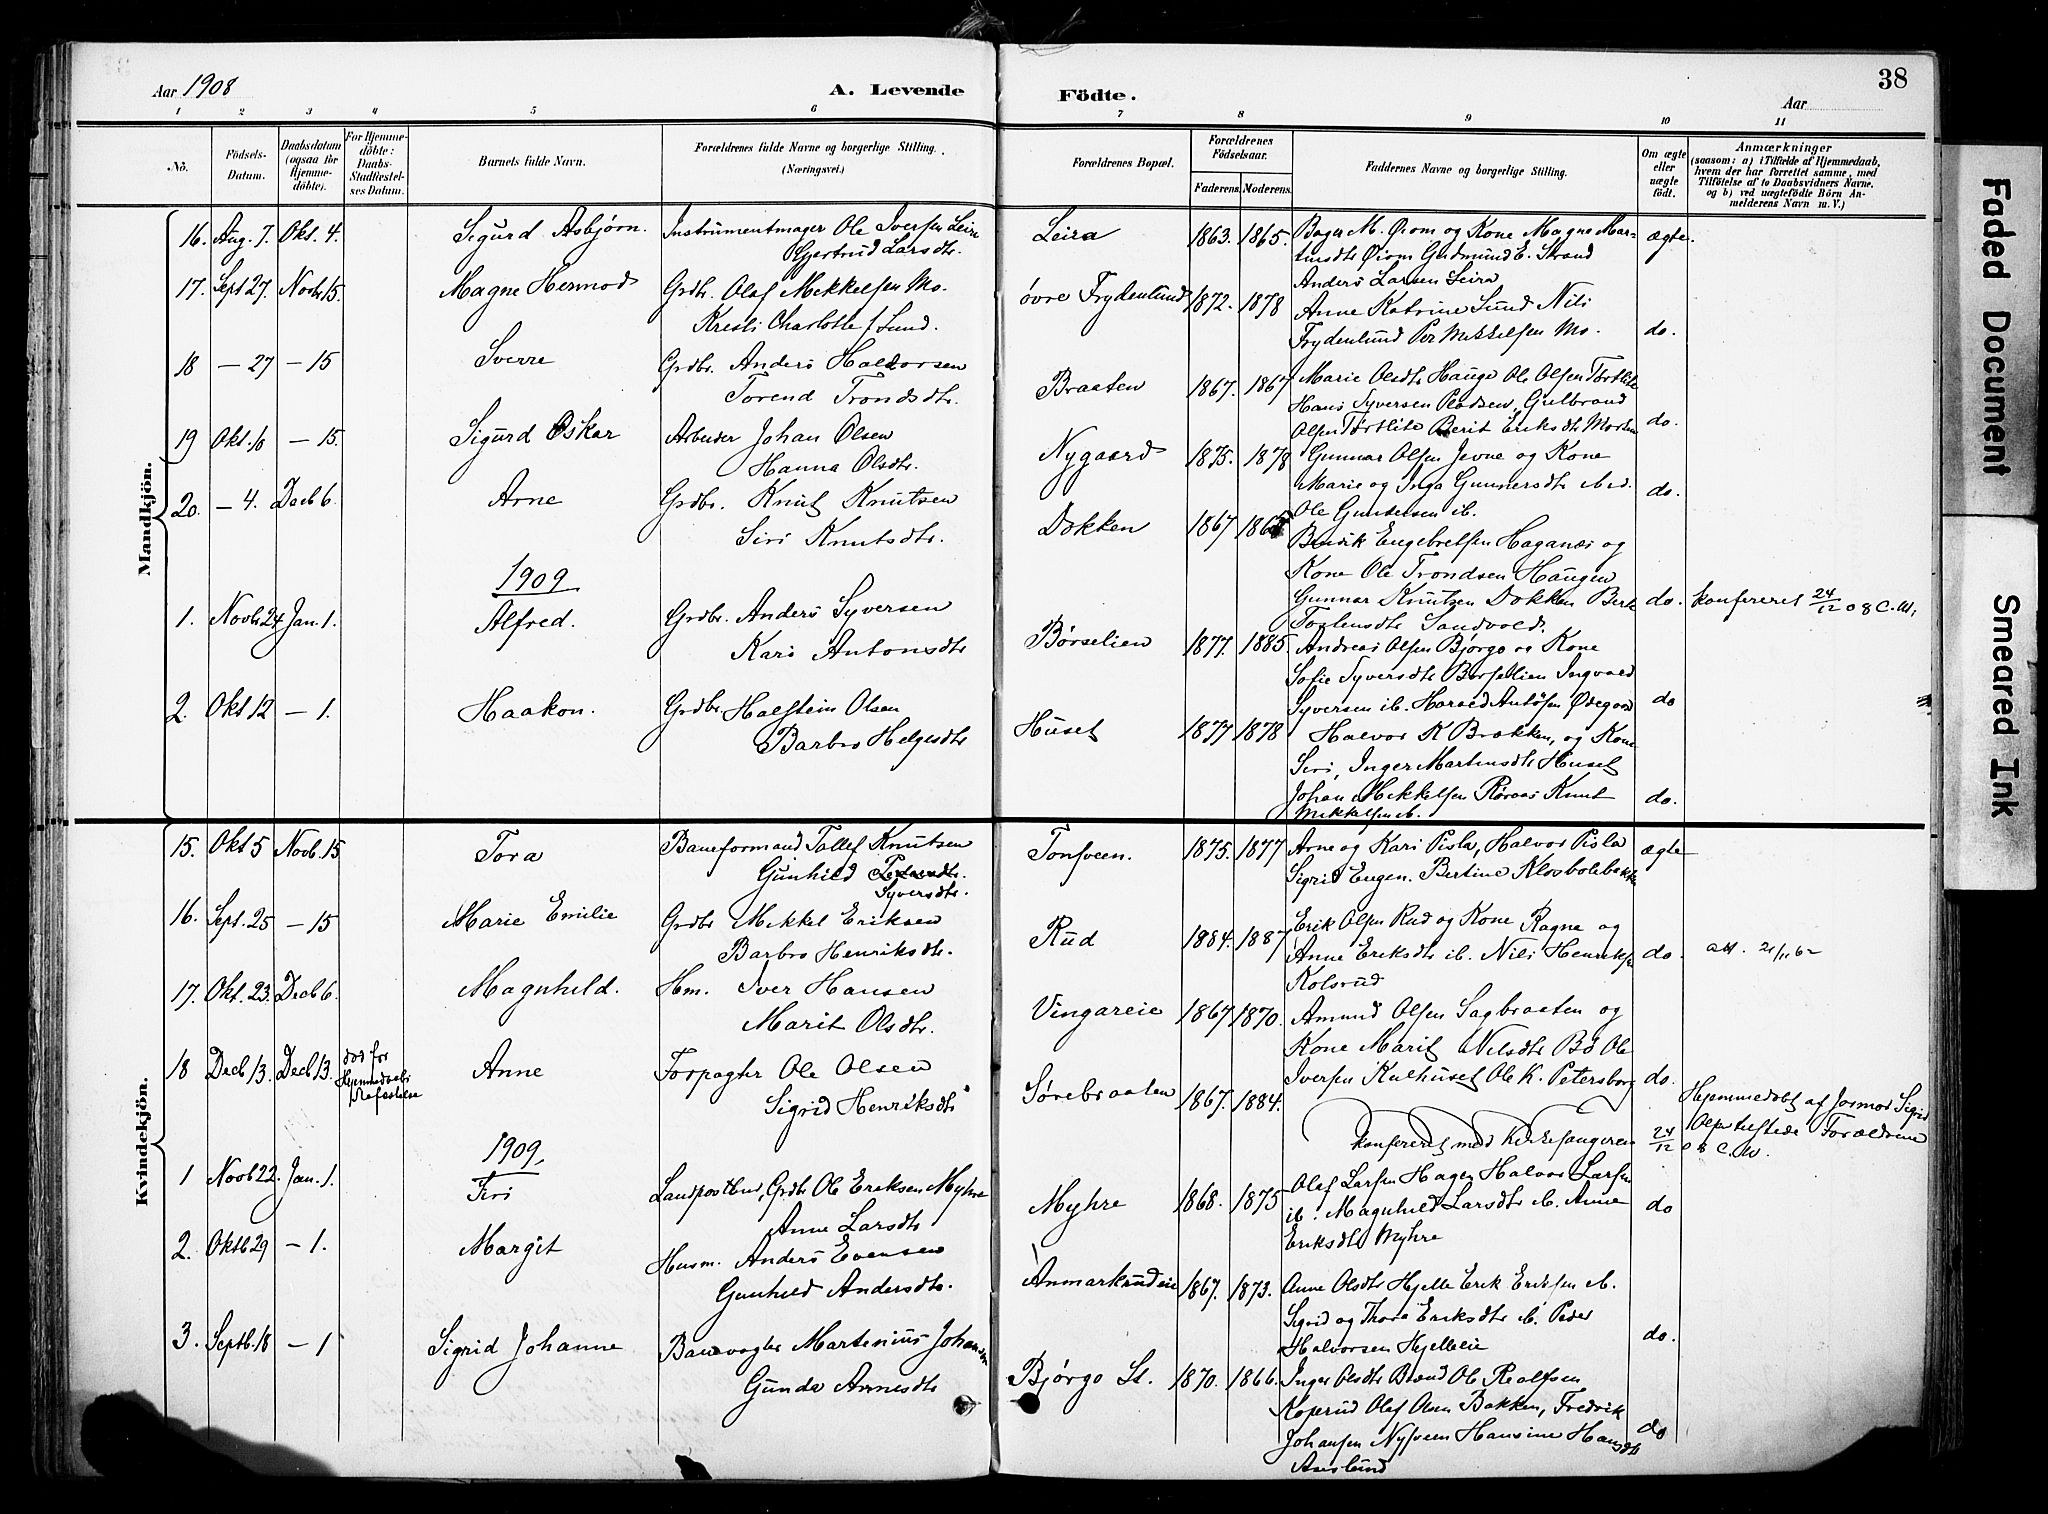 Aar 1908
A. Levende
Födte.
Aar
38
1 2 3 4 5 6 7 8 9 10 11
No.
Födsels-Datum.
Daabsdatum (ogsaa for Hjemme-döbte).
For Hjemme-döbte: Daabs-Stadfæstel-ses Datum.
Barnets fulde Navn.
Forældrenes fulde Navne og borgerlige Stilling. (Næringsvei.)
Forældrenes Bopæl.
Forældrenes Födselsaar.
Faderens. Moderens.
Faddernes Navne og borgerlige Stilling.
Om ægte eller uægte födt.
Anmærkninger
(saasom: a) i Tilfælde af Hjemmedaab, hvem der har forrettet samme, med Tilföielse af to Daabsvidners Navne, og b) ved uægtefödte Börn An-melderens Navn m. V.)
Mandkjön.
16. Aug. 7. Okt. 4. Sigurd Asbjørn. Instrumentmager Ole Iversen Leira
Gjertrud Larsdtr.
Leira 1863. 1865. Bager M. Øiom og Kone Magne Mar-
tinsdtr Øiom Gudmund E. Strand
Anders Larsen Leira
ægte.
17. Sept 27. Novb 15. Magne Hermod Grdbr. Olaf Mikkelsen Mo.
Kresti Charlotte f Lund.
øvre Frydenlund 1872. 1878 Anne Katrine Lund Nils
Frydenlund Per Mikkelsen Mo. do.
18 — 27 — 15 Sverre Grdbr. Anders Halvorsen
Torend Trondsdtr.
Braaten 1867. 1867 Marie Olsdtr Hauge Ole Olsen Tørtlite
Hans Syversen Gulbrand
Olsen Tørtlite Berit Eriksdtr do.
19 Okt. 10 — 15. Sigurd Oskar Arbeider Johan Olsen
Hanna Olsdtr.
Nygaard 1875. 1878 Gunnar Olsen Jevne og Kone
Marie og Inga Gunnersdtr ibid.
Ole Gundersen ib. do.
20. — 4. Decb 6. Arne Grdbr. Knut Knutsen
Siri Knutsdtr.
Dokken 1867 Henrik Engebretsen Haganæs og
Kone Ole Trondsen Haugen
Gunnar Knutsen Dokken Berit
Torstensdtr Sandvold. do. konfereret 24/12 08 C.M.
1909
1. Novb 24 Jan. 1. Alfred. Grdbr. Anders Syversen
Kari Antonsdtr
Børselien 1877. 1885. Andreas Olsen Bjørgo og Kone
Sofie Syversdtr Børselien Ingvald
Syversen ib. Harald Antonsen Ødegaard do
2. Okt 12 — 1. Haakon. Grdbr Halstein Olsen
Barbro Helgesdtr
Huset 1877 1878 Halvor K Brækken, og Kone
Siri, Inger Martinsdtr Huset
Johan Mikkelsen Røraas Knut
Mikkelsen ib. do.
Kvindekjön.
15. Okt 5 Novb. 15 Tora Baneformand Tollef Knutsen
Gunhild
Syversdtr.
Tonsveen. 1875. 1877 Arne og Kari Pisla, Halvor Pisla
Sigrid Engen. Bertine Klovbolebakke ægte
16. Sept. 25 — 15 Marie Emilie Grdbr Mikkel Eriksen
Barbro Henriksdtr.
Rud 1884. 1887 Erik Olsen Rud og Kone Ragne og
Anne Eriksdtr ib. Nils Henriksen
Kolsrud do. att. 21/11 62
17. Okt. 23. Decb 6. Magnhild. Hm. Iver Hansen
Marit Olsdtr.
Vingareie 1867 1870. Amund Olsen Sagbraaten og
Kone Marit Nilsdtr Bø Ole
Iversen Kulhuset Ole K. Petersborg do.
18 Decb 13. Decb 13. død før Hjemmedaabs Stafæstelse Anne Forpagter Ole Olsen
Sigrid Henriksdtr
Sørebraaten 1867. 1884.
Hjemmedøbt af Jormor Sigrid
Olsen tilstede Forældrene
konfereret med Kirkesangeren 24/12 08 C.M.
1909.
1 Novb 22. Jan. 1. Siri Landpostbud, Grdbr Ole Eriksen Myhre
Anne Larsdtr
Myhre 1868. 1875 Olaf Larsen Hagen Halvor Larsen
ib. Magnhild Larsdtr ib. Anne
Eriksdtr Myhre do
2. Oktb 29 — 1. Margit Husm. Anders Evensen
Gunhild Andersdtr.
Anmarkrudeie 1867. 1873. Anne Olsdtr Hjelle Erik Eriksen ib.
Sigrid og Thora Eriksdtr ib. Peder
Halvorsen Hjelleeie do.
3. Septb. 18 — 1 Sigrid Johanne Banevogter Martinius Johansen
Gunda Arnesdtr
Bjørgo St. 1870. 1866. Inger Olsdtr Brænd Ole Rolfsen
Koperud Olaf Olsen Bakken, Fredrik
Johansen Nysveen Hansine Hansdtr
Aaslund do
Faded Document
Smeared Ink